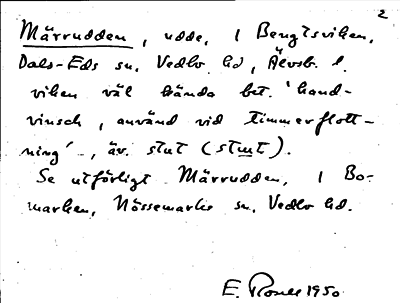 2
Märrudden, udde, i Bengtsviken,
Dals-Eds sn, Vedbo hd, Älvsb. l.
viken väl kända bet. 'hand-
vinsch, använd vid timmerflott-
ning', äv. stut (stmt).
Se utförligt Märrudden, i Bo-
marken, Nössemarks sn, Vedbo hd.
E. 1950